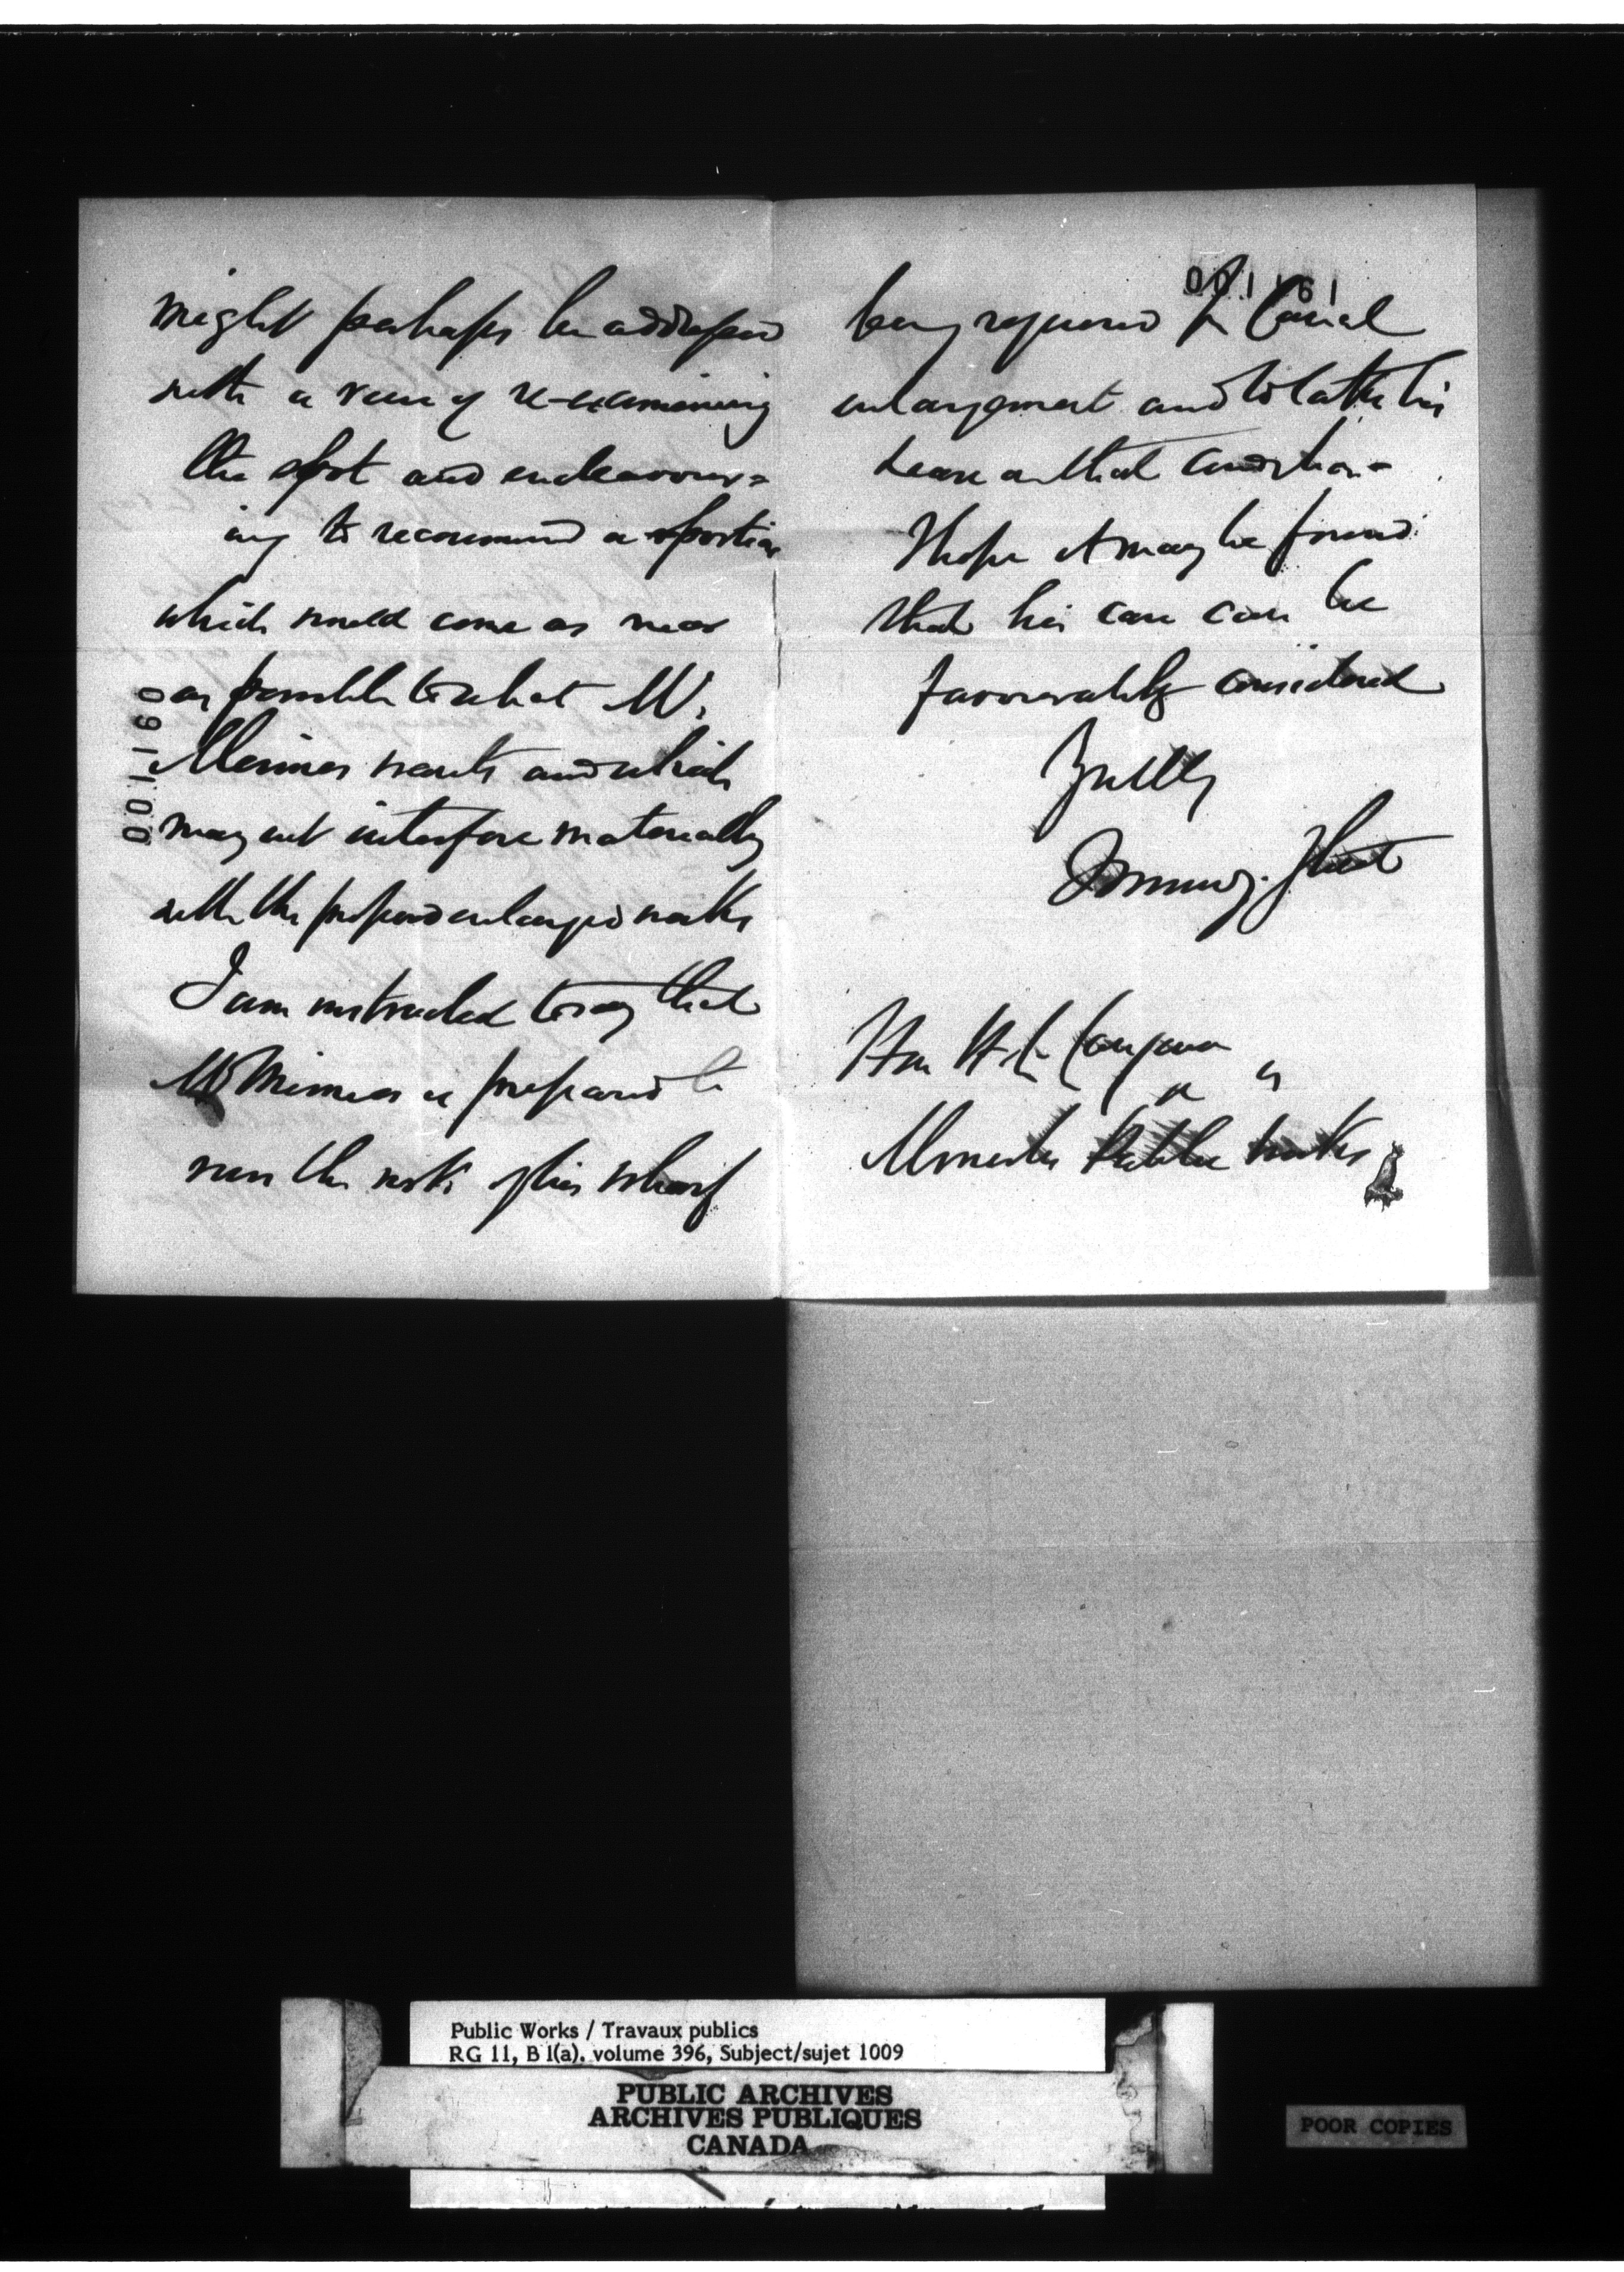 might perhaps be addressed
with a view of re-examining
the spot and endeavour=
ing to recommend a portion
which would come as near
as possible to what Mr.
wants and which
may not interfere materially
with the proposed enlarged works
I am instructed to say that
Mr is prepared to
run the risk of his wharf
001160
001161
being required for Canal
enlargement and to take his
Lease on that condition=
I hope it may be found
that his case can be
favourably considered
Truly
Hon H. L. Langevin
Minister Public Works
Public Works / Travaux publics
RG 11, B 1(a), volume 396, Subject/sujet 1009
PUBLIC ARCHIVES
ARCHIVES PUBLIQUES
CANADA
POOR COPIES